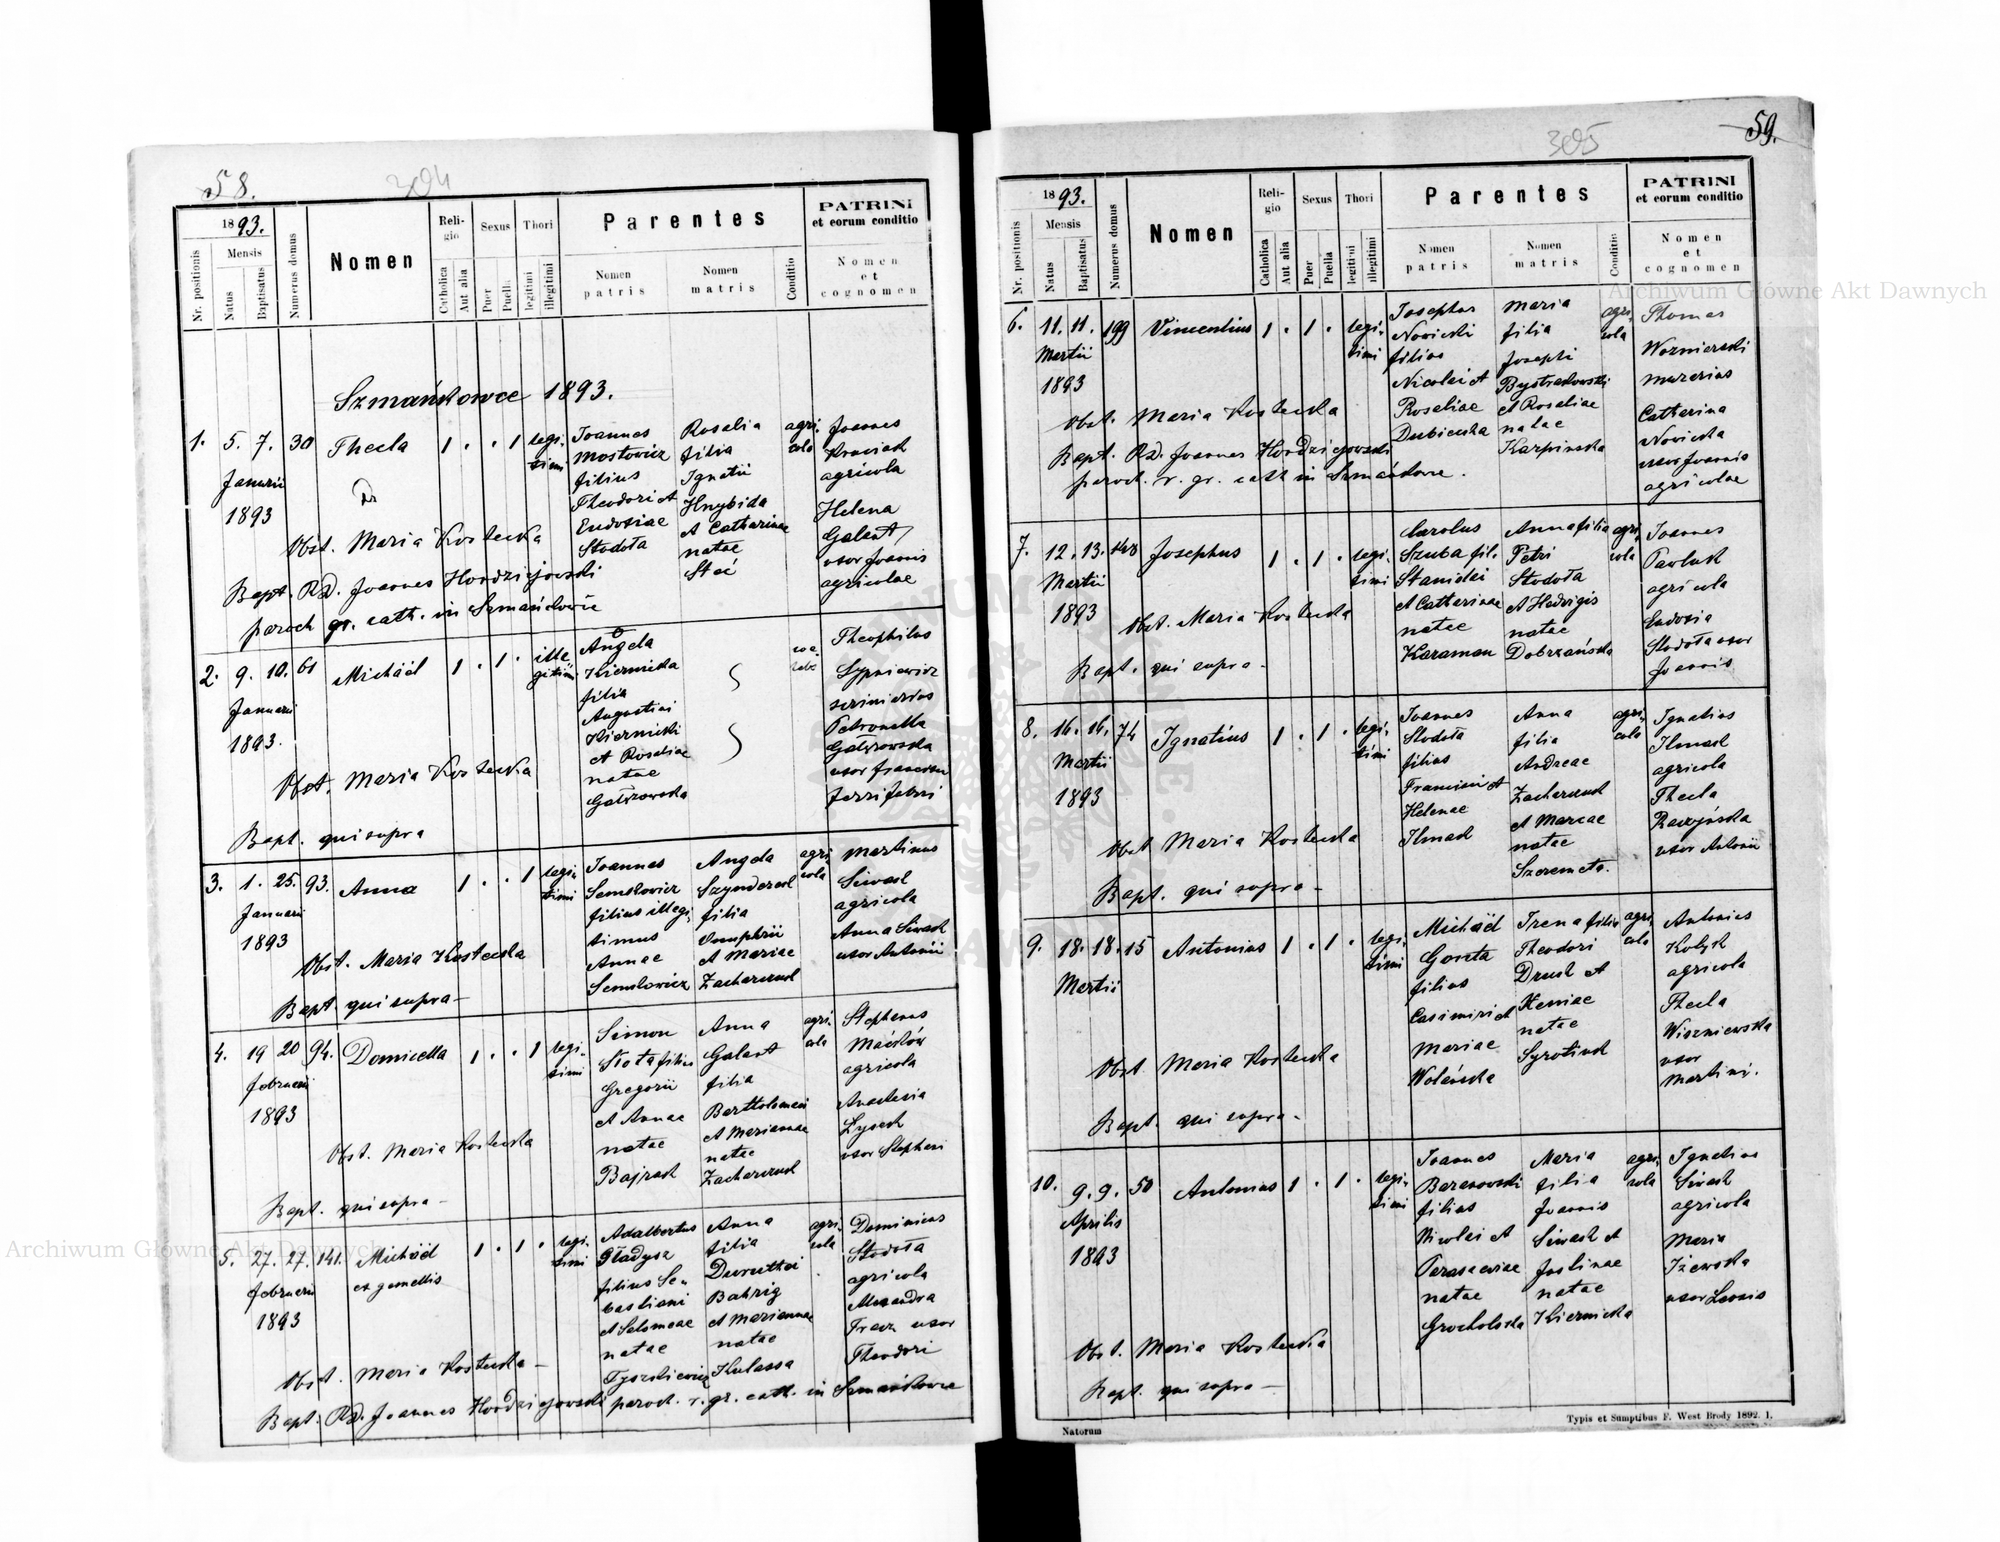 58.
304
1893.
Nr. positionis
Mensis
Natus
Baptisatus
Numerus domus
Nomen
Religio
Catholica
Aut alia
Sexus
Puer
Puella
Thori
legitimi
illegitimi
Parentes
Nomen patris
Nomen matris
Conditio
PATRINI
et eorum conditio
Nomen
et
cognomen
Szmańkowce 1893.
1. 5. 7. 30 Thecla 1 . . 1 legi-
timi
Januarii
1893
Joannes
Mostowicz
filius
Theodori et
Eudosiae
Stodoła
Rosalia
filia
Ignatii
Hnybida
et Catharinae
natae
Steć
agri-
cola
Joannes
Krawiach
agricola
Helena
Galant
uxor Joannis
agricolae
Obst. Maria Kostecka
Bapt. Rd. Joannes Hordziejowski
paroch gr. cath. in Szmańkowce
2. 9. 10. 61 Michäel 1 . 1 . ille-
gitimi
Januarii
1893.
Angela
Kiernicka
filia
Augustini
Kiernicki
et Rosaliae
natae
Gałkowska
Theophilus
Sypniewicz
Petronella
uxor Francisci
Obst. Maria Kostecka
Bapt. qui supra
3. 1. 25. 93. Anna 1 . . 1 legi-
timi
Januarii
1893
Joannes
Semkowicz
filius illegi-
timus
Annae
Semkowicz
Angela
Szynderuk
filia
Onuphrii
et Mariae
Zacharczuk
agri-
cola
Martinus
Siwak
agricola
Anna Siwak
uxor Antonii
Obst. Maria Kostecka
Bapt. qui supra -
4. 19 20 94. Domicella 1 . . 1 legi-
timi
februarii
1893
Simon
Słota filius
Gregorii
et Annae
natae
Bajrak
Anna
Galant
filia
Bartholomaei
et Mariannae
natae
Zacharczuk
agri-
cola
Stephanus
Maćków
agricola
Anastasia
Łysak
uxor Stephani
Obst. Maria Kostecka
Bapt. qui supra -
5. 27. 27. 141. Michäel 1 . 1 . legi-
timi
ex gemellis
februarii
1893
Adalbertus
Gładysz
filius Se-
bastiani
et Salomeae
natae
Tyszkiewicz
Anna
filia
Bahrig
et Mariannae
natae
Kulassa
agri-
cola
Dominicus
Stodoła
agricola
Alexandra
Fracz uxor
Theodori
Obst. Maria Kostecka -
Bapt. Rd. Joannes Hordziejowski paroch. r. gr. cath. in Szmańkowce
59.
305
1893.
Nr. positionis
Mensis
Natus
Baptisatus
Numerus domus
Nomen
Religio
Catholica
Aut alia
Sexus
Puer
Puella
Thori
legitimi
illegitimi
Parentes
Nomen patris
Nomen matris
Conditio
PATRINI
et eorum conditio
Nomen
et
cognomen
6. 11. 11. 199 Vincentius 1 . 1 . legi-
timi
Martii
1893
Josephus
Nowicki
filius
Nicolai et
Rosaliae
Dubiecka
Maria
filia
Josephi
Bystrakowski
et Rosaliae
natae
Karpinska
agri-
cola
Thomas
Woznierski
murarius
Catharina
Nowicka
uxor Joannis
agricolae
Obst. Maria Kostecka
Bapt. Rd. Joannes Hordziejowski
paroch. r. gr. cath in Szmańkowce.
7. 12. 13. Josephus 1 . 1 . legi-
timi
Martii
1893
Carolus
Szuba fil.
Stanislai
et Catharinae
natae
Karaman
Anna filia
Petri
Stodoła
et Hedvigis
natae
Dobrzańska
agri-
cola
Joannes
Pawluk
agricola
Eudosia
Stodoła uxor
Joannis
Obst. Maria Kostecka
Bapt. qui supra -
8. 16. 16. 74 Ignatius 1 . 1 . legi-
timi
Martii
1893
Joannes
Stodoła
filius
Francisci et
Helenae
Ilmak
Anna
filia
Andreae
Zacharczuk
et Mariae
natae
Szeremeta.
agri-
cola
Ignatius
Ilmak
agricola
Thecla
uxor Antonii
Obst Maria Kostecka
Bapt. qui supra -
9. 18. 18. 15 Antonius 1 . 1 . legi-
timi
Martii
Michäel
Goreta
filius
Casimiri et
Mariae
Wolańska
Irena filia
Theodori
Druk et
Xeniae
natae
Syrotiuk
agri-
cola
Antonius
Kołyk
agricola
Thecla
Wiszniewska
uxor
Martini.
Obst. Maria Kostecka
Bapt. qui supra -
10. 9. 9. 50 Antonius 1 . 1 . legi-
timi
Aprilis
1893
Joannes
Baranowski
filius
Nicolai et
Parascaviae
natae
Grocholska
Maria
filia
Joannis
Siwak et
Justinae
natae
Kiernicka
agri-
cola
Ignatius
Siwak
agricola
Maria
Iżewska
uxor Leonis
Obst. Maria Kostecka
Bapt. qui supra -
Natorum
Typis et Sumptibus F. West Brody 1892. 1.
Archiwum Główne Akt Dawnych
Archiwum Główne Akt Dawnych